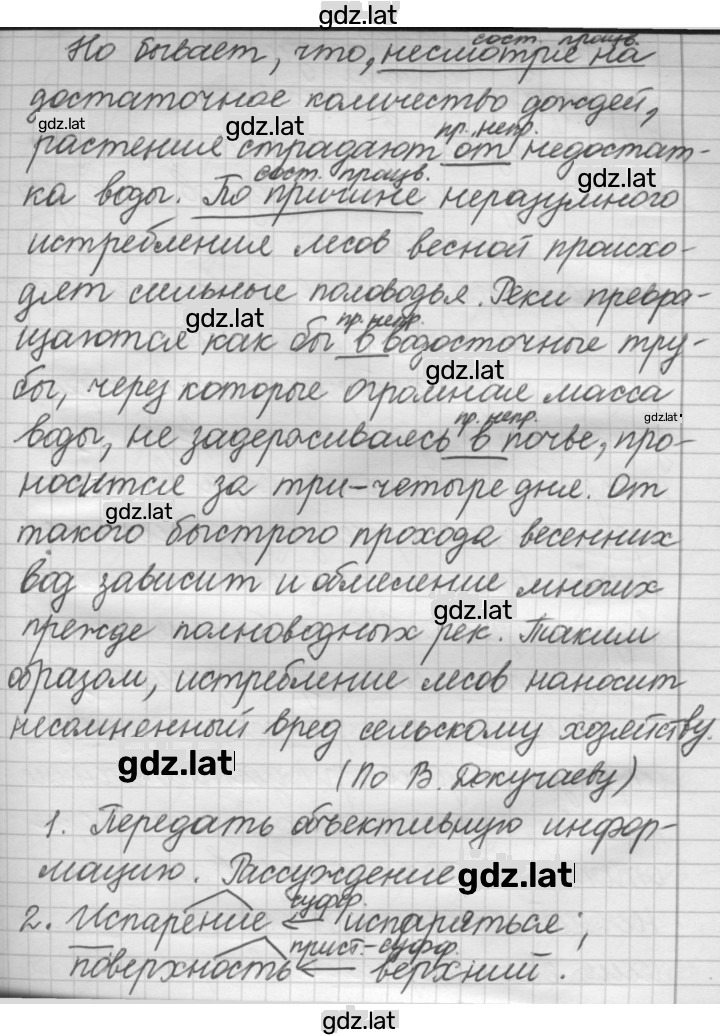 gdz.lat
сост. произв.
Но бывает, что, несмотря на
достаточное количество дождей,
gdz.lat
gdz.lat
пр. непр.
растения страдают от недостат-
gdz.lat
сост. произв.
ка воды. По причине неразумного
истребления лесов весной происхо-
дят сильные половодья. Реки превра-
gdz.lat
пр. непр.
щаются как бы в водосточные тру-
gdz.lat
бы, через которые огромная масса
пр. непр.
gdz.lat
воды, не задерживаясь в почве, про-
носится за три-четыре дня. От
gdz.lat
такого быстрого прохода весенних
вод зависит и обмеление многих
gdz.lat
прежде полноводных рек. Таким
образом, истребление лесов наносит
несомненный вред сельскому хозяйству.
gdz.lat
(По В. Докучаеву)
1. Передать объективную инфор-
мацию. Рассуждение
gdz.lat
суфф.
2. Испарение ← испаряться;
прист.-суфф.
поверхность ← верхний.
gdz.lat